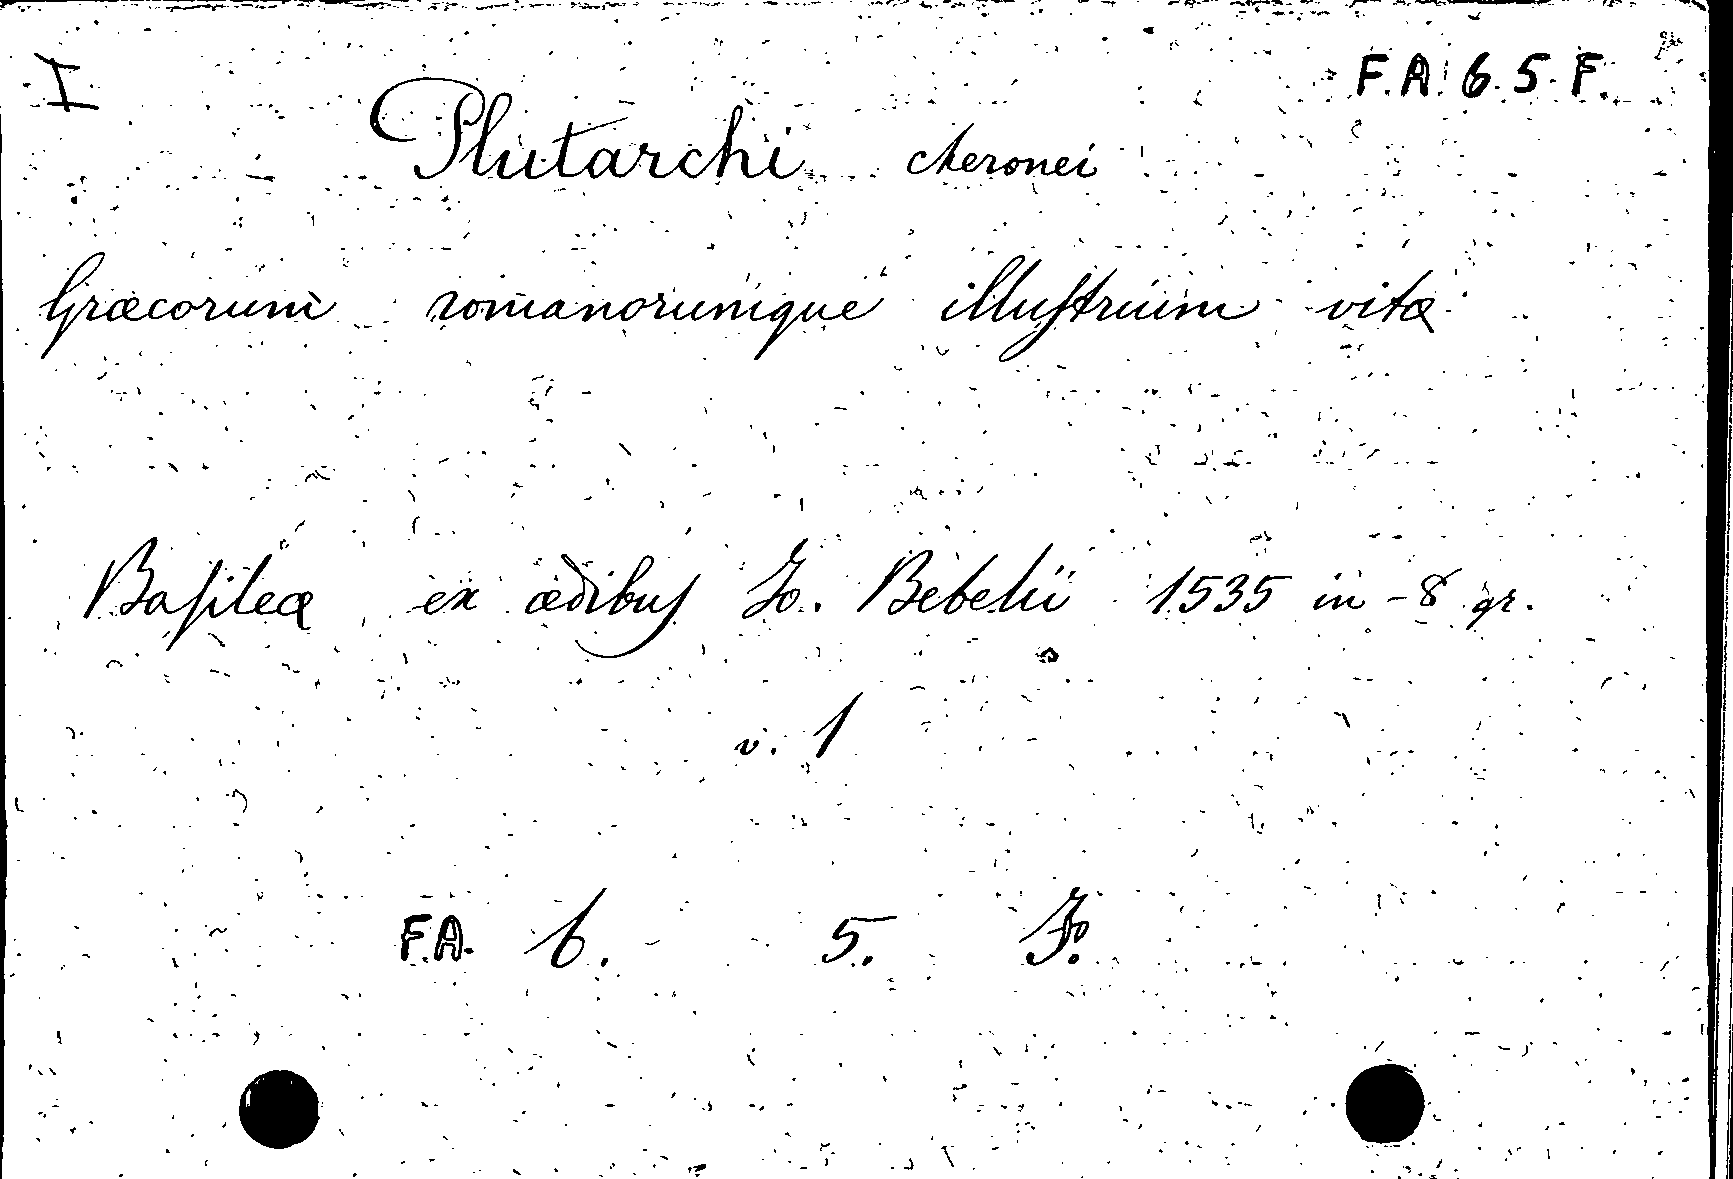 I
F.A. 6. 5. F.
Plutarchi cheronei
Græcorum romanorumque illuſtrium vitæ
Baſileæ ex ædibuſ Jo. Bebelii 1535 in-8 gr.
v. 1
F.A. 6. 5. F.